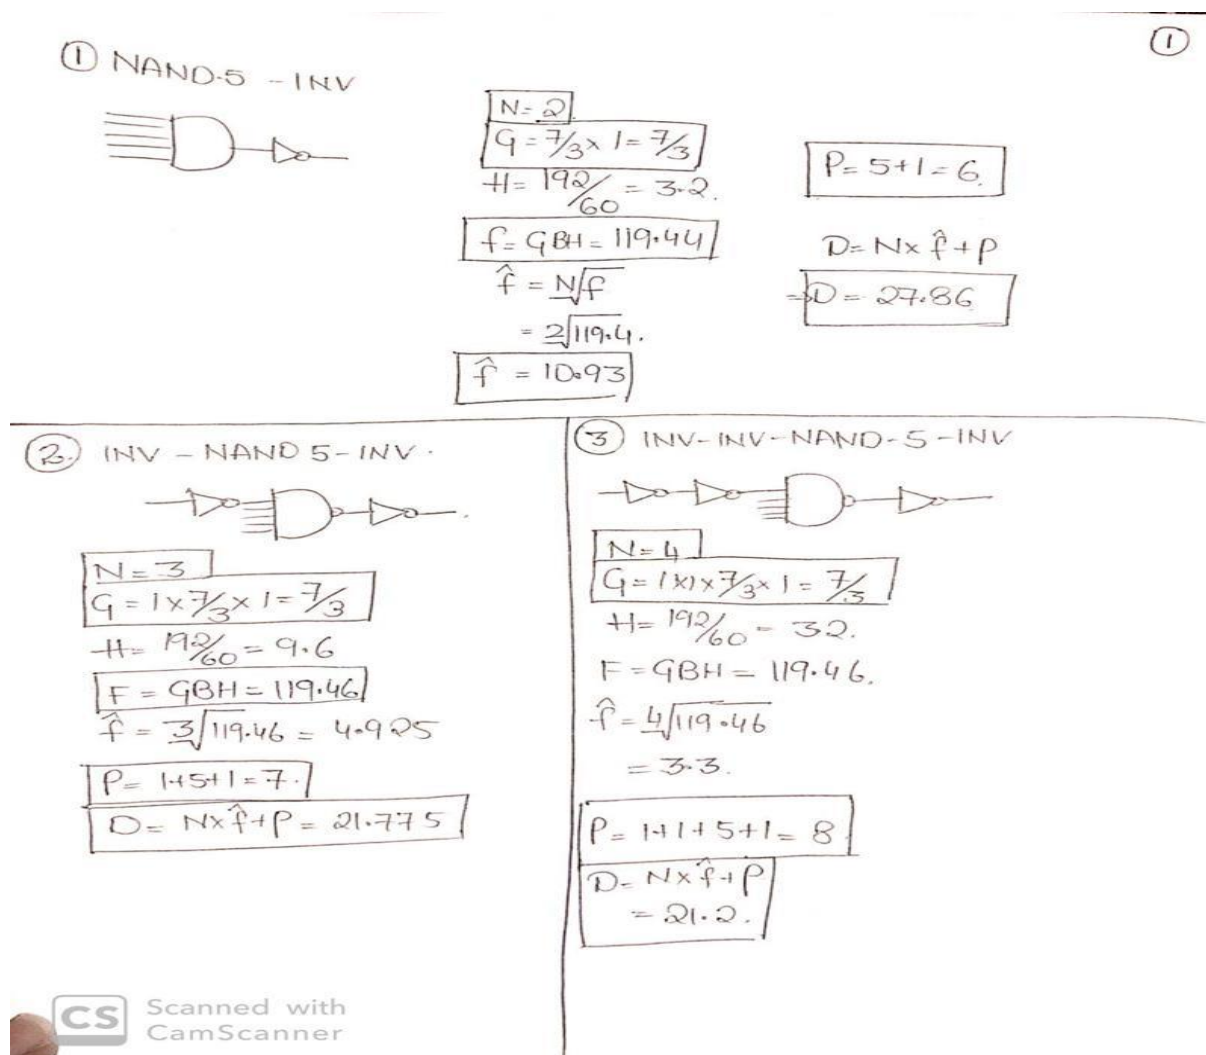 ①
① NAND-5 - INV
N=2
G = 7/3 x 1 = 7/3
H = 192/60 = 3.2.
f = GBH = 119.44
f̂ = N√f
= 2√119.4.
f̂ = 10.93
P = 5+1 = 6.
D = N x f̂ + P
⇒ D = 27.86
② INV - NAND 5 - INV.
N = 3
G = 1 x 7/3 x 1 = 7/3
H = 192/60 = 9.6
F = GBH = 119.46
f̂ = 3√119.46 = 4.925
P = 1+5+1 = 7.
D = N x f̂ + P = 21.775
③ INV-INV-NAND-5-INV
N = 4
G = 1 x 1 x 7/3 x 1 = 7/3
H = 192/60 = 32.
F = GBH = 119.46.
f̂ = 4√119.46
= 3.3.
P = 1+1+5+1 = 8
D = N x f̂ + P
= 21.2.
CS
Scanned with
CamScanner